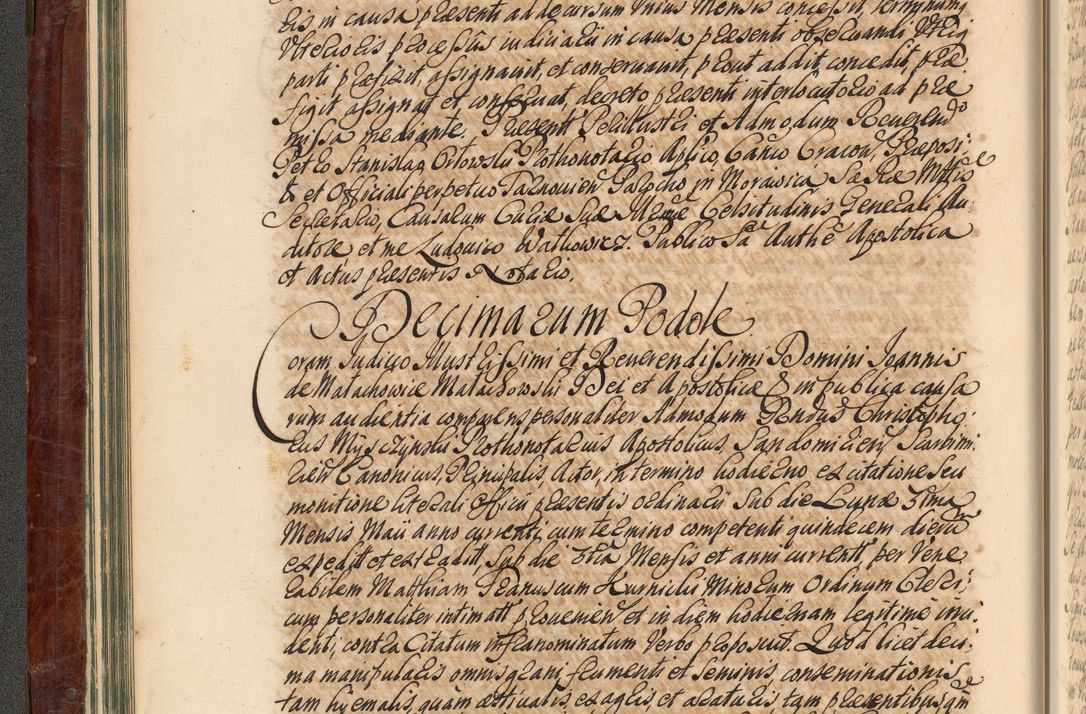 tis in causa præsenti ad decursum Unius Mensis concessit, terminum
parti præfixit, assignavit, et conservavit, prout addit concedit, præ
figit assignat et conservat, decreto præsenti interlocutorio ad præ
missa mediante. Præsent Perillustri et Admodum Reverendo
Petro Stanislao Orlowski Prothonotario Aplico, Canco Cracov, Præposi:
& et Officiali perpetuo Tarnovien Parocho in Morawica Sæ Ræ Mttis
Secretario, Causarum Curiæ Suæ Celsitudinis Generali Au:
ditore et me Ludovico Watkowicz Publico Sa Authe Apostolica
et actus præsentis Notario.
Decimarum Podole
Coram Judicio Illustrissimi et Reverendissimi Domini Joannis
de Małachowice Małachowski Dei et Apostolicæ & in publica causa
rum audientia comparens personaliter Admodum Rendus Christopho:
rus Myszczynski Prothonotarius Apostolicus, Sandomirien, Scarbimi:
rien Canonicus, Principalis, Actor, in termino hodierno ex citatione seu
monitione literali Officii præsentis ordinarii sub die Lunæ 3tima
Mensis Maii anno currenti cum termino competenti quindecem dierum
expedit et extradit, sub die Mensis et anni current per Vene
rabilem Matthiam Kurnicki Minorum Ordinum Cleri:
cum personaliter intimatt provenien et in diem hodiernam legitime inci:
denti, contra Citatum infranominatum Verbo proposuit. Quod licet deci:
ma manipularis omnis grani frumenti et seminis conseminationis
tam hyemalis, quam æstivalis, ex agris et araturis tam præsentibus, qm